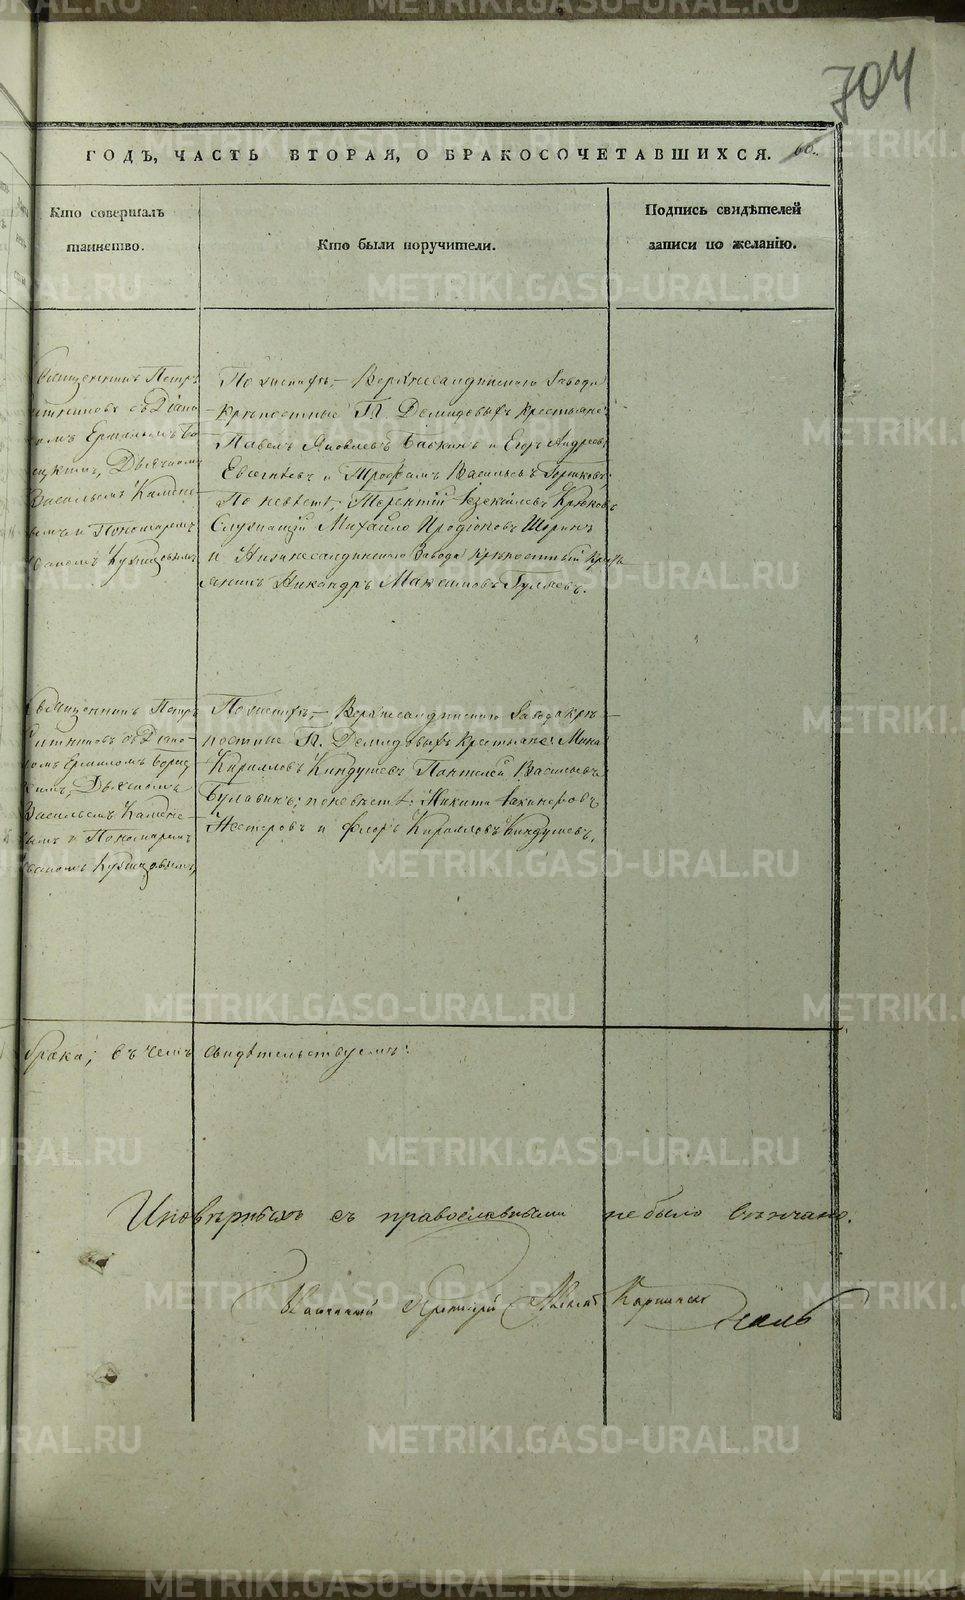 704
ГОДЪ, ЧАСТЬ ВТОРАЯ, О БРАКОСОЧЕТАВШИХСЯ. 60.
Кто совершалъ таинство.
Кто были поручители.
Подпись свидѣтелей записи по желанію.
Священникъ Петръ
съ Діако
номъ Ермиломъ Бо
Дьячкомъ
Васильемъ Камене
вымъ и Пономаремъ
Кузнецовымъ
По женихѣ, – Верхнесалдинскаго завода
крѣпостные Г.П. Демидовыхъ крестьяне:
Павелъ Яковлевъ Баскинъ и Егоръ Андреевъ
Евсегнѣевъ и Трофимъ Васильевъ Горшковъ
По невѣстѣ, Терентій Іезекіилевъ Крюковъ
Служащій Михайло Иродіоновъ Шоринъ
и Нижнесалдинскаго Завода крѣпостный кресть
янинъ Никандръ Максимовъ Гуляевъ.
Священникъ Петръ
съ Діако-
номъ Ермиломъ
Дьячкомъ
Васильемъ Камене-
вымъ и Пономаремъ
Кузнецовымъ
По женихѣ, – Верхнесалдинскаго Завода крѣ-
постные Г.П. Демидовыхъ крестьяне: Мина
Кириловъ Киндушевъ Пантелей Васильевъ
Булавинъ; по невѣстѣ: Никита
Нестеровъ и Флоръ Кириловъ Киндушевъ.
брака; въ чемъ свидѣтельствуемъ:
Иновѣрныхъ съ православными не было вѣнчано.
METRIKI.GASO-URAL.RU